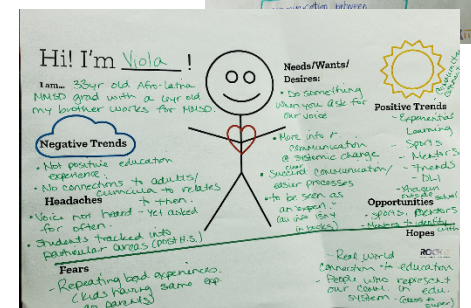 Hi! I'm Viola !
I am... 33yr old Afro-Latina
MMSD grad with a 6yr old
my brother works for MMSD.
Negative Trends
• Not positive education
experience.
• No connections to adults/
curricula to relates
to them.
Headaches
• Voice not heard - Yet asked
for often.
• Students tracked into
particular areas (post H.S.)
Fears
- Repeating bad experiences.
(kids having same exp.
as parents)
Needs/Wants/
Desires:
• Do something
when you ask for
our voice
• More info &
communication
@ systemic change
• Succinct communication/
easier processes
• to be seen as
an "expert"
Positive Trends
- Experiential
Learning
- Sports
- Mentors
- Friends
- DLI
Opportunities
• Sports, Mentors
- Mentors to identify with
Hopes
- Real world
connection to education
- People who represent
our comm. in edu.
system